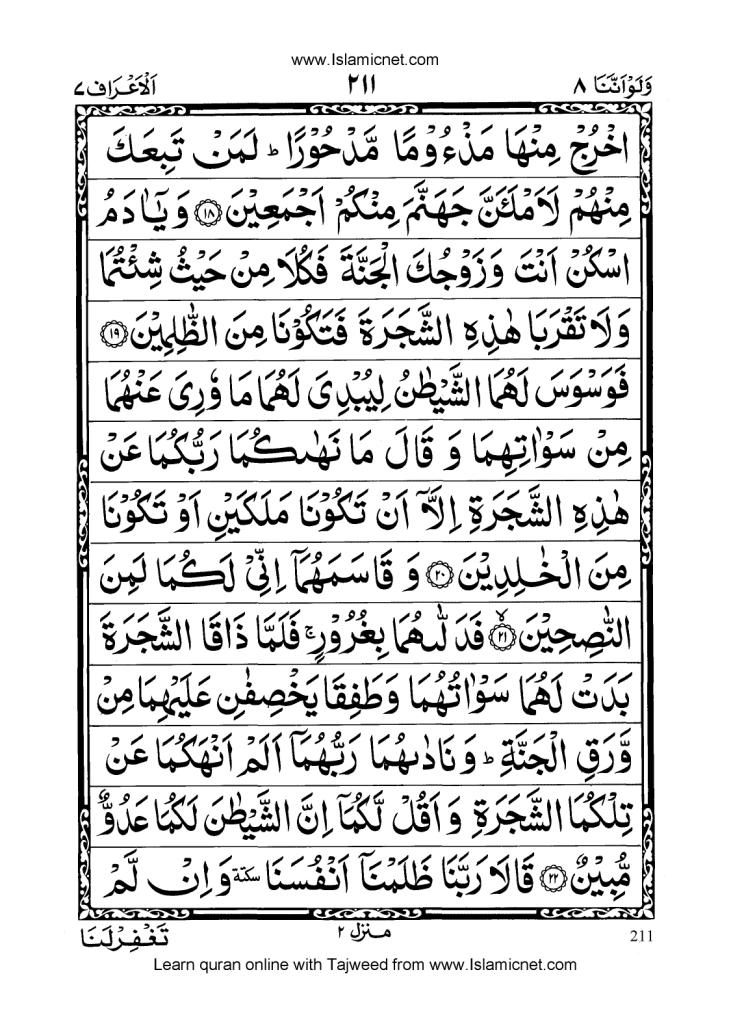 www.Islamicnet.com
وَلَوْ اَنَّنَا ٨
٢١١
اَلْاَعْرَاف ٧
اخْرُجْ مِنْهَا مَذْءُوْمًا مَّدْحُوْرًا ؕ لَمَنْ تَبِعَكَ
مِنْهُمْ لَاَمْلَـَٔنَّ جَهَنَّمَ مِنْكُمْ اَجْمَعِيْنَ ۝١٨ وَ يٰۤاٰدَمُ
اسْكُنْ اَنْتَ وَ زَوْجُكَ الْجَنَّةَ فَكُلَا مِنْ حَيْثُ شِئْتُمَا
وَ لَا تَقْرَبَا هٰذِهِ الشَّجَرَةَ فَتَكُوْنَا مِنَ الظّٰلِمِيْنَ ۝١٩
فَوَسْوَسَ لَهُمَا الشَّيْطٰنُ لِيُبْدِيَ لَهُمَا مَا وٗرِيَ عَنْهُمَا
مِنْ سَوْاٰتِهِمَا وَ قَالَ مَا نَهٰىكُمَا رَبُّكُمَا عَنْ
هٰذِهِ الشَّجَرَةِ اِلَّاۤ اَنْ تَكُوْنَا مَلَكَيْنِ اَوْ تَكُوْنَا
مِنَ الْخٰلِدِيْنَ ۝٢٠ وَ قَاسَمَهُمَاۤ اِنِّيْ لَكُمَا لَمِنَ
النّٰصِحِيْنَ ۙ۝٢١ فَدَلّٰىهُمَا بِغُرُوْرٍ ۚ فَلَمَّا ذَاقَا الشَّجَرَةَ
بَدَتْ لَهُمَا سَوْاٰتُهُمَا وَ طَفِقَا يَخْصِفٰنِ عَلَيْهِمَا مِنْ
وَّرَقِ الْجَنَّةِ ؕ وَ نَادٰىهُمَا رَبُّهُمَاۤ اَلَمْ اَنْهَكُمَا عَنْ
تِلْكُمَا الشَّجَرَةِ وَ اَقُلْ لَّكُمَاۤ اِنَّ الشَّيْطٰنَ لَكُمَا عَدُوٌّ
مُّبِيْنٌ ۝٢٢ قَالَا رَبَّنَا ظَلَمْنَاۤ اَنْفُسَنَا سكتة وَ اِنْ لَّمْ
تَغْفِرْ لَنَا
منزل ٢
211
Learn quran online with Tajweed from www.Islamicnet.com